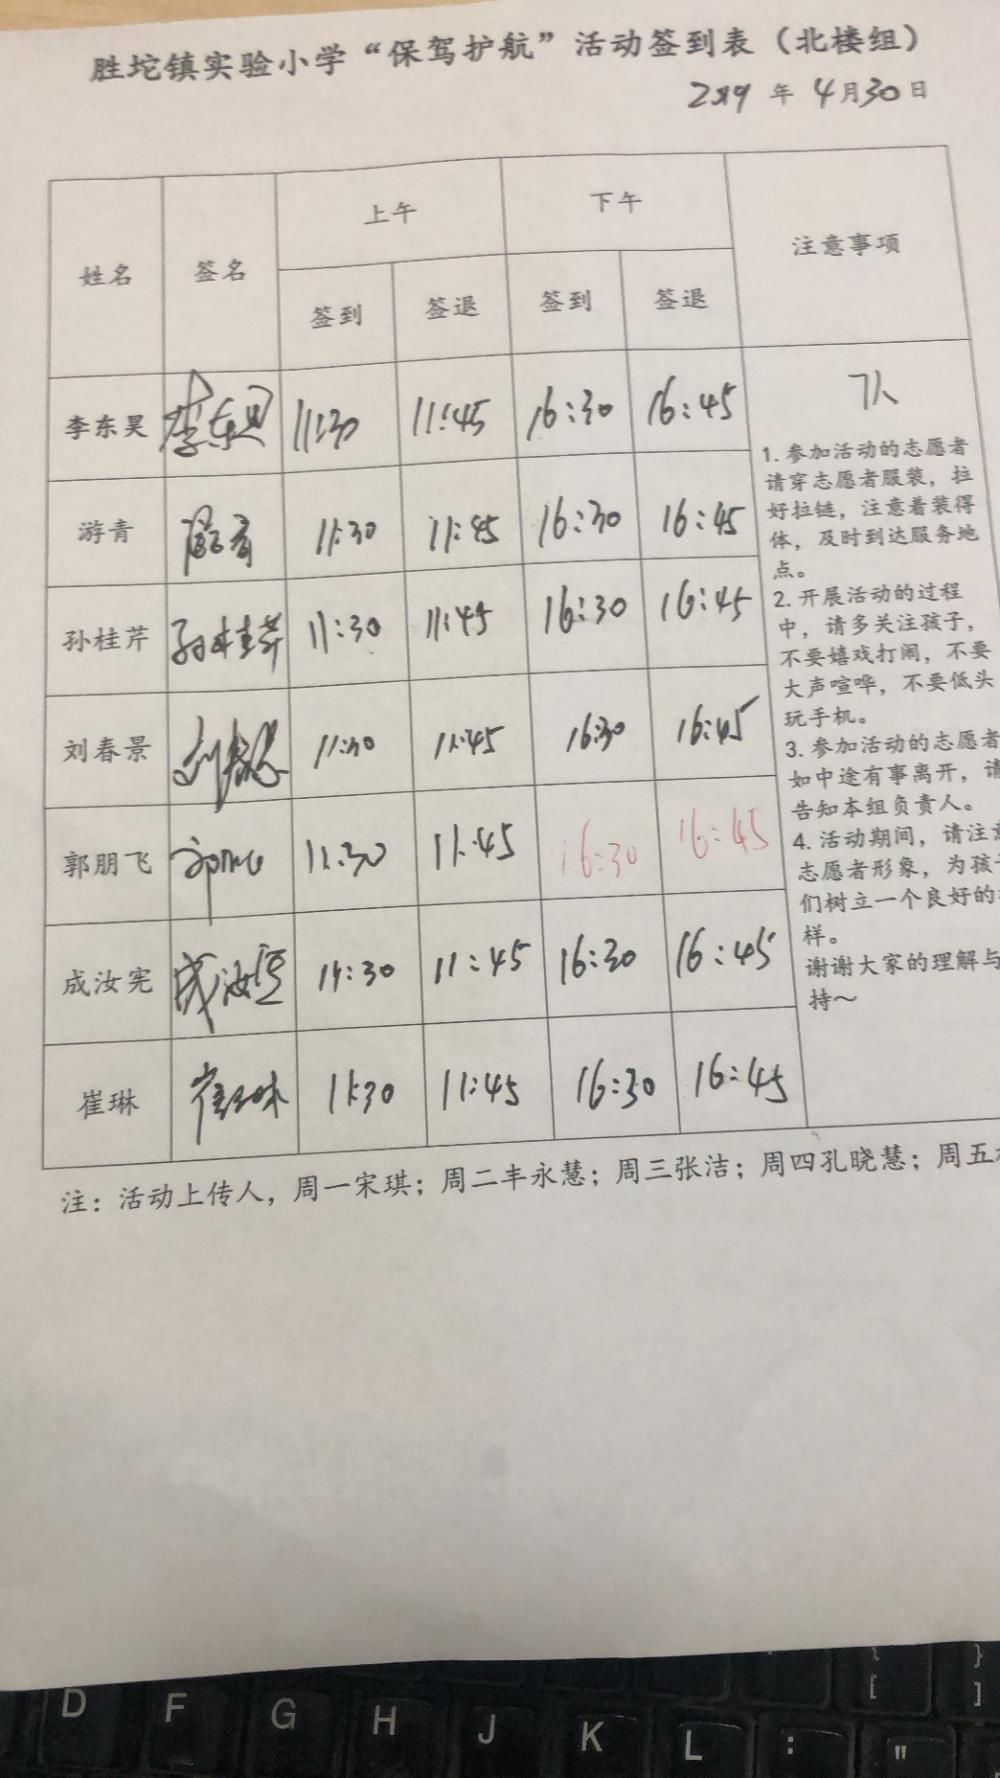 胜坨镇实验小学“保驾护航”活动签到表（北楼组）
2019 年 4月30日
姓名 签名 上午 下午 注意事项
签到 签退 签到 签退
李东昊 李东昊 11:30 11:45 16:30 16:45
7人
游青 游青 11:30 11:45 16:30 16:45
孙桂芹 孙桂芹 11:30 11:45 16:30 16:45
刘春景 刘春景 11:30 11:45 16:30 16:45
郭朋飞 11:30 11:45 16:30 16:45
成汝宪 成汝宪 11:30 11:45 16:30 16:45
崔琳 崔琳 11:30 11:45 16:30 16:45
1. 参加活动的志愿者
请穿志愿者服装，拉
好拉链，注意着装得
体，及时到达服务地
点。
2. 开展活动的过程
中，请多关注孩子，
不要嬉戏打闹，不要
大声喧哗，不要低头
玩手机。
3. 参加活动的志愿者
如中途有事离开，请
告知本组负责人。
4. 活动期间，请注意
志愿者形象，为孩子
们树立一个良好的
样。
谢谢大家的理解与
持～
注：活动上传人，周一宋琪；周二丰永慧；周三张洁；周四孔晓慧；周五
D F G H J K L : "
{ [ } ]